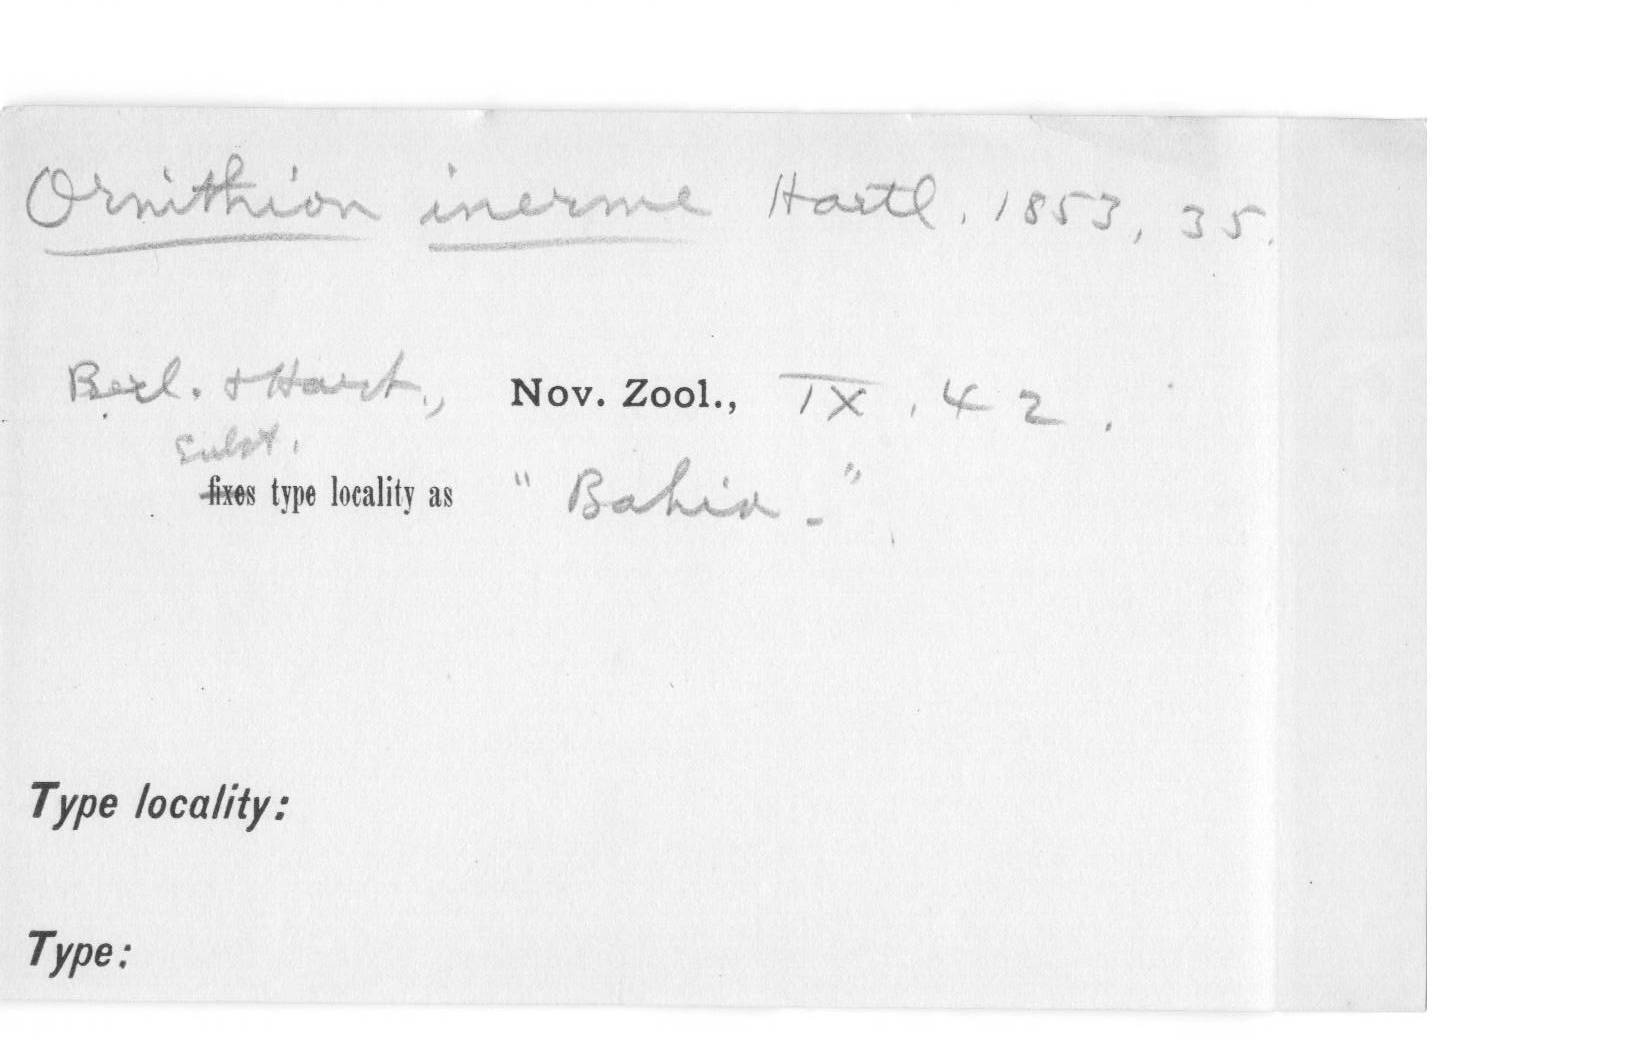 Ornithion inerme Hartl. 1853, 35.
Berl. + Hart., Nov. Zool., IX, 42.
Subst.
fixes type locality as "Bahia."
Type locality:
Type: